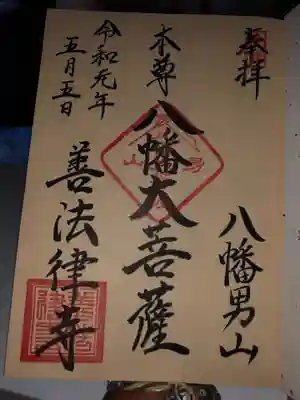 奉拝
八幡男山
本尊
八幡大菩薩
善法律寺
令和元年
五月五日